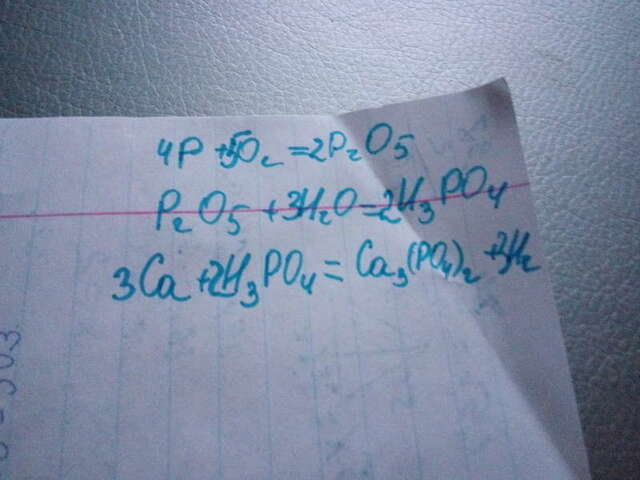 4P + 5O₂ = 2P₂O₅
P₂O₅ + 3H₂O = 2H₃PO₄
3Ca + 2H₃PO₄ = Ca₃(PO₄)₂ + 3H₂